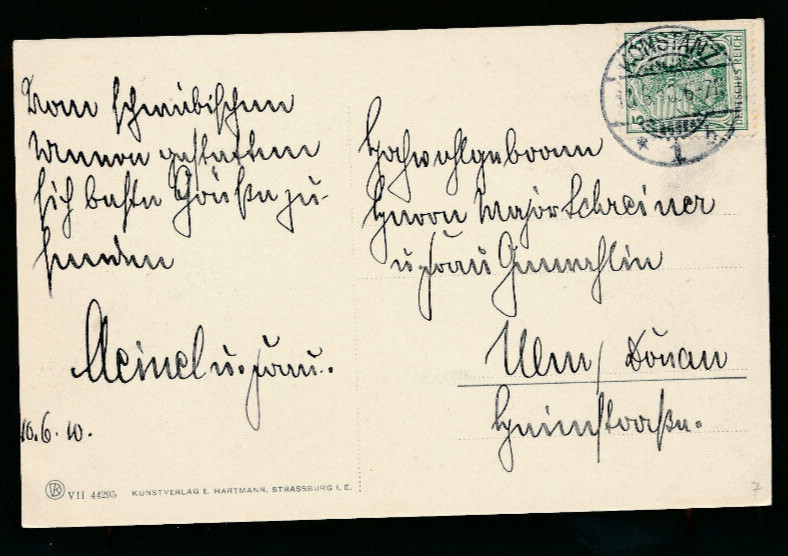 Vom schwäbischen
Meere gestatten
sich beste Grüße zu
senden
Meinel u. Frau.
10.6.10.
Hochwohlgeboren
Herrn Major Schreiner
u. Frau Gemahlin
Ulm / Donau
Heimstraße.
KONSTANZ
DEUTSCHES REICH
5
* 1
VII 44295 KUNSTVERLAG E. HARTMANN, STRASSBURG I. E.
7